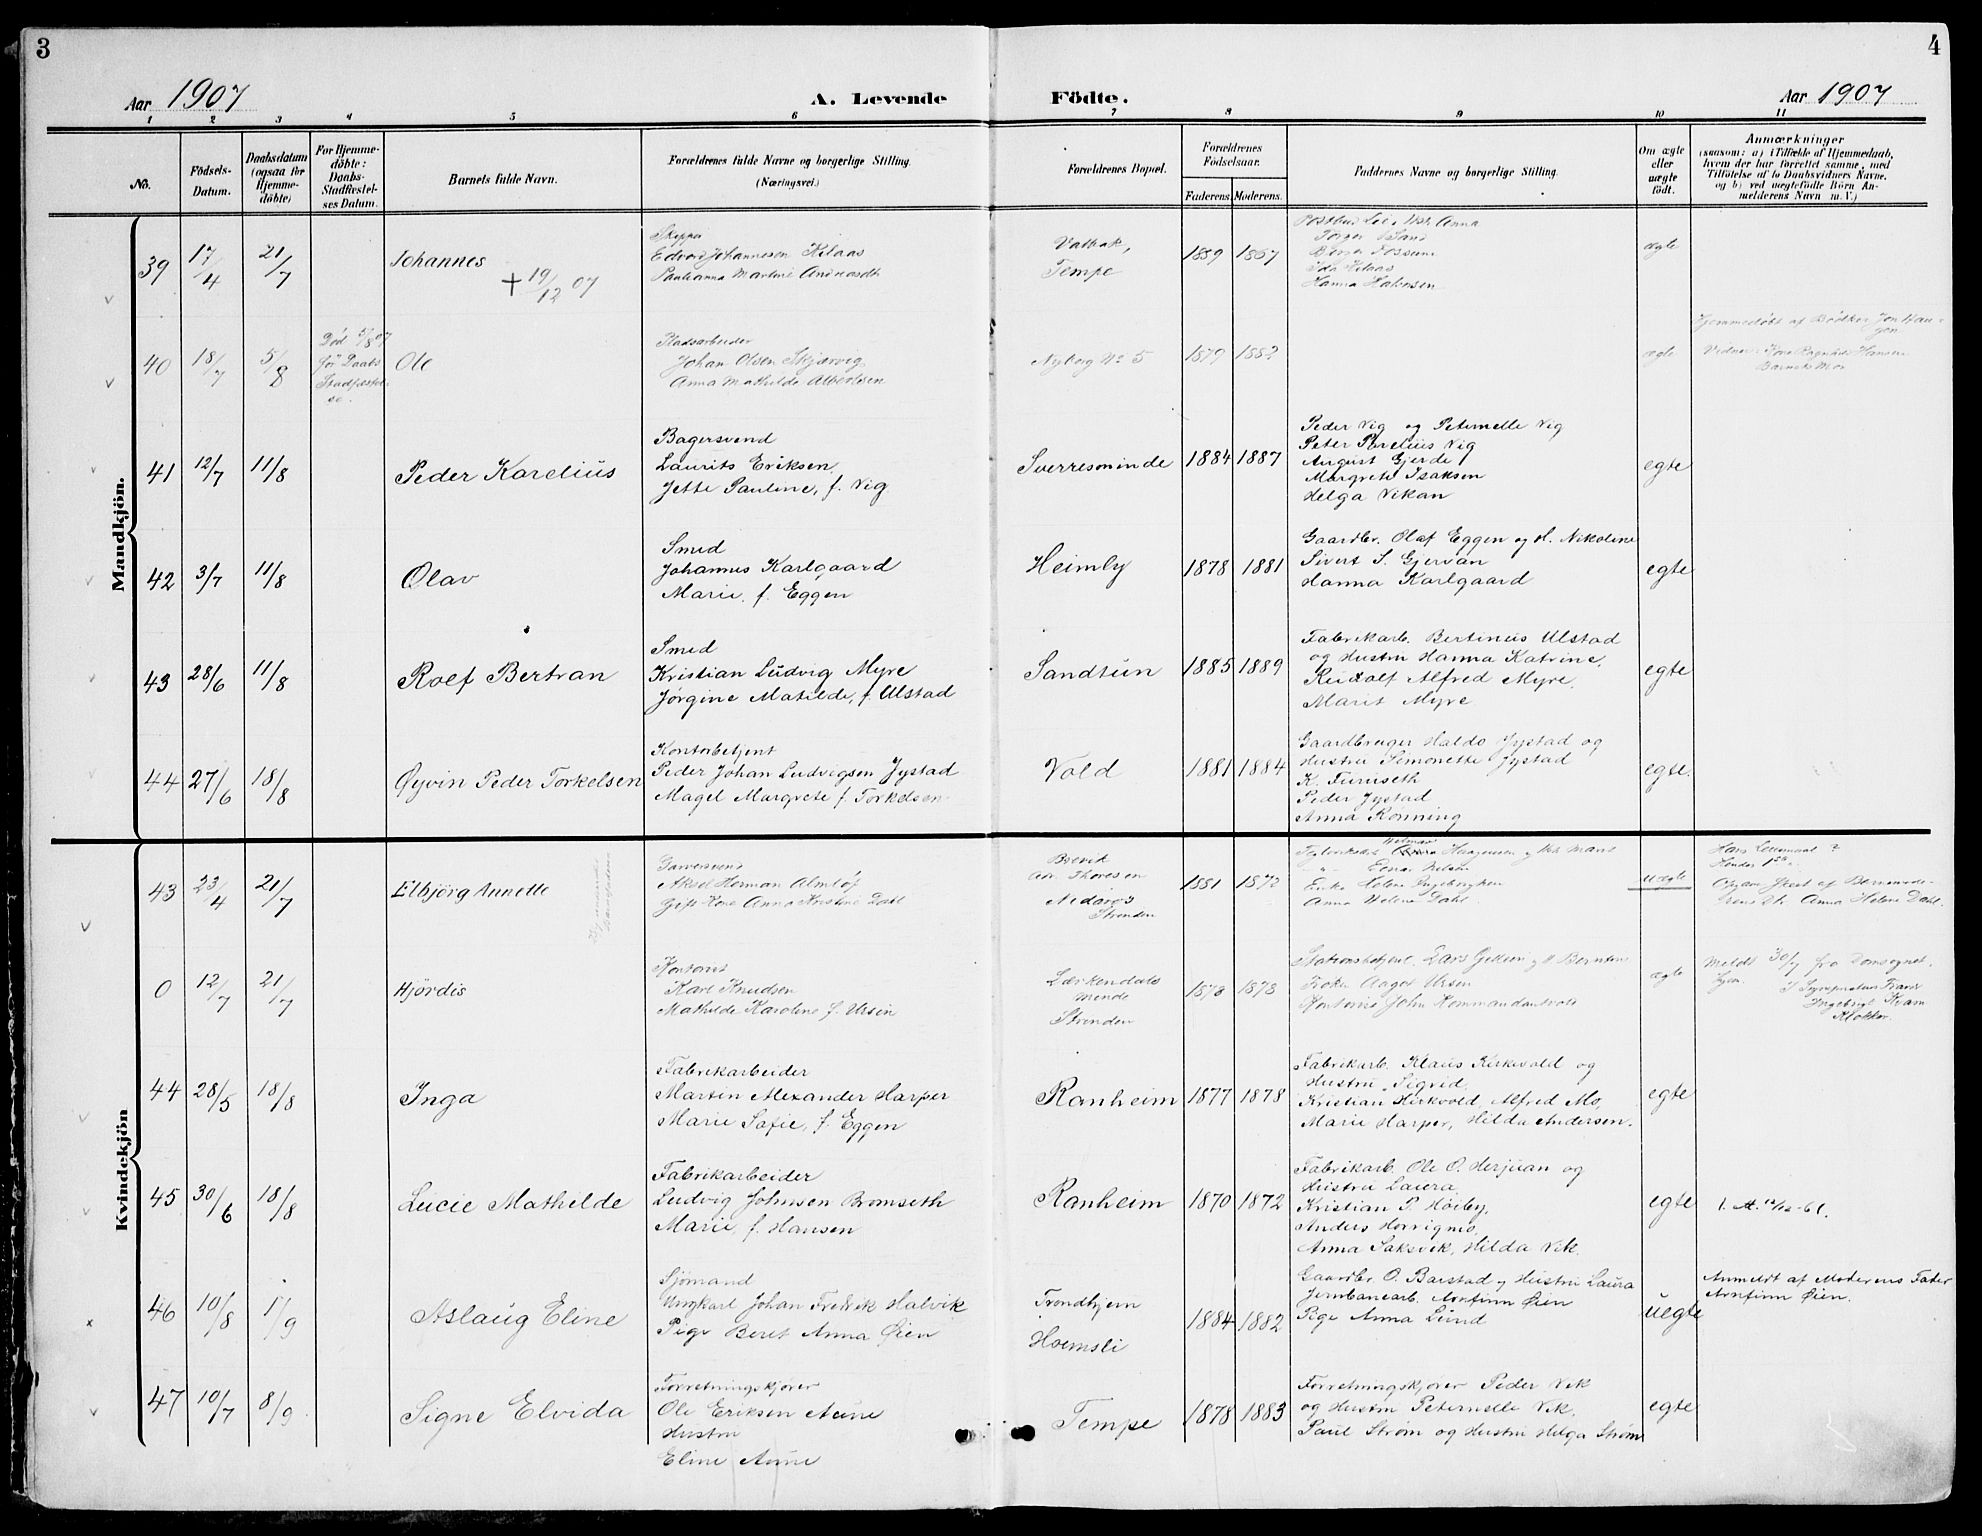 3
4
Aar 1907
A. Levende
Födte.
Aar 1907
1 2 3 4 5 6 7 8 9 10 11
No.
Födsels-Datum.
Daabsdatum (ogsaa for Hjemme-döbte)
For Hjemme-döbte: Daabs-Stadfæstel-ses Datum.
Barnets fulde Navn.
Forældrenes fulde Navne og borgerlige Stilling. (Næringsvei.)
Forældrenes Bopæl.
Forældrenes Födselsaar.
Faderens. Moderens.
Faddernes Navne og borgerlige Stilling.
Om ægte eller uægte födt.
Anmærkninger
(saasom: a) i Tilfælde af Hjemmedaab,
hvem der har forrettet samme, med
Tilföielse af to Daabsvidners Navne,
og b) ved uægtefödte Börn An-
melderens Navn m. V.)
Mandkjön.
39 17/4 21/7 Johannes + 19/12 07
Skipper
Edvard Johannesen Kilaas
Pauleanna Martine
Valbak, Tempe
1859 1867
Anna
Torger Sand
Ida Kilaas
Hanna
ægte
40 18/7 5/8
Død 5/8 07
før Daabs
Stadfæstel
se.
Ole
Pladsarbeider
Johan Olsen Skjærvig
Anna Mathilde Albertsen
Nyborg No 5
1879 1882
ægte
Hjemmedøbt af Bødker Jon Hau-
gen
Vidner: Kone Ragnhild Hansen
Barnets Mor
41 12/7 11/8 Peder Karelius
Bagersvend
Laurits Eriksen
Jette Pauline, f. Vig
Sverresminde
1884 1887
Peder Vig og Peternelle Vig
Peter Parelius Vig
August Gjerde
Margrete Isaksen
Helga Vikan
egte
42 3/7 11/8 Olav
Smed
Johannes Karlgaard
Marie f. Eggen
Heimly
1878 1881
Gaardbr. Olaf Eggen og H. Nikoline
Sivert S. Gjervan
Hanna Karlgaard
egte
43 28/6 11/8 Rolf Bertran
Smed
Kristian Ludvig Myre
Jørgine Matilde, f. Ulstad
Sandtun
1885 1889
Fabrikarb. Bertinus Ulstad
og Hustru Hanna Katrine,
Rudolf Alfred Myre,
Marit Myre
egte
44 27/6 18/8 Øyvin Peder Torkelsen
Kontorbetjent
Peder Johan Ludvigsen Jystad
Magel Margrete f. Torkelsen
Vold
1881 1884
Gaardbruger Haldo Jystad og
Hustru Simonette Jystad
K. Furuseth
Peder Jystad
Anna Rønning
egte.
Kvindekjön
43 23/4 21/7 Elbjörg Annette
Garversvend
Aksel Herman Almlöf
Gift Kone Anna Kristine Dahl
Brevik
Adr. Thoresen
Nidarö
Strinden
1881 1872
Enke Helene
Anna Helene Dahl
uægte
Anna Helene Dahl.
0 12/7 21/7 Hjördis
Kontorist
Karl Knudsen
Mathilde Karoline f. Ursin
Lærkendals
minde
Strinden
1878 1878
Frøken Aagot Ursin
Kontorist John Kommandantvold
ægte
Meldt 30/7 fra Domsognet.
Ingebrigt Kvam
Klokker.
44 28/5 18/8 Inga
Fabrikarbeider
Martin Alexander Harper
Marie Sofie, f. Eggen
Ranheim
1877 1878
Fabrikarb. Klaus Kirkvold og
Hustru Sigrid,
Kristian Kirkvold, Alfred Mo,
Marie Harper, Hilda Andersen.
egte
45 30/6 18/8 Lucie Mathelde
Fabrikarbeider
Ludvig Johnsen Bromseth
Marie, f. Hansen
Ranheim
1870 1872
Fabrikarb. Ole O. Herjuan og
Hustru Laura,
Kristian P. Høiby,
Anders Horrigmo,
Anna Saksvik, Hilda Vik.
egte
1. A. 12/12-61.
46 10/8 1/9 Aslaug Eline
Sjömand
Ungkarl Johan Fredrik Halvik
Pige Beret Anna Øien
Trondhjem
Hoemsli
1884 1882
Gaardbr. O. Barstad og Hustru Laura
Jernbanearb. Arnfinn Øien
Pige Anna Lund
Uegte
Anmeldt af Moderens Fader
Arnfinn Øien.
47 10/7 8/9 Signe Elvida
Forretningskjører
Ole Eriksen Aune
Hustru
Eline Aune
Tempe
1878 1883
Forretningskjører Peder Vik
og Hustru Peternelle Vik,
Paul Strøm og Hustru Helga Strøm
egte